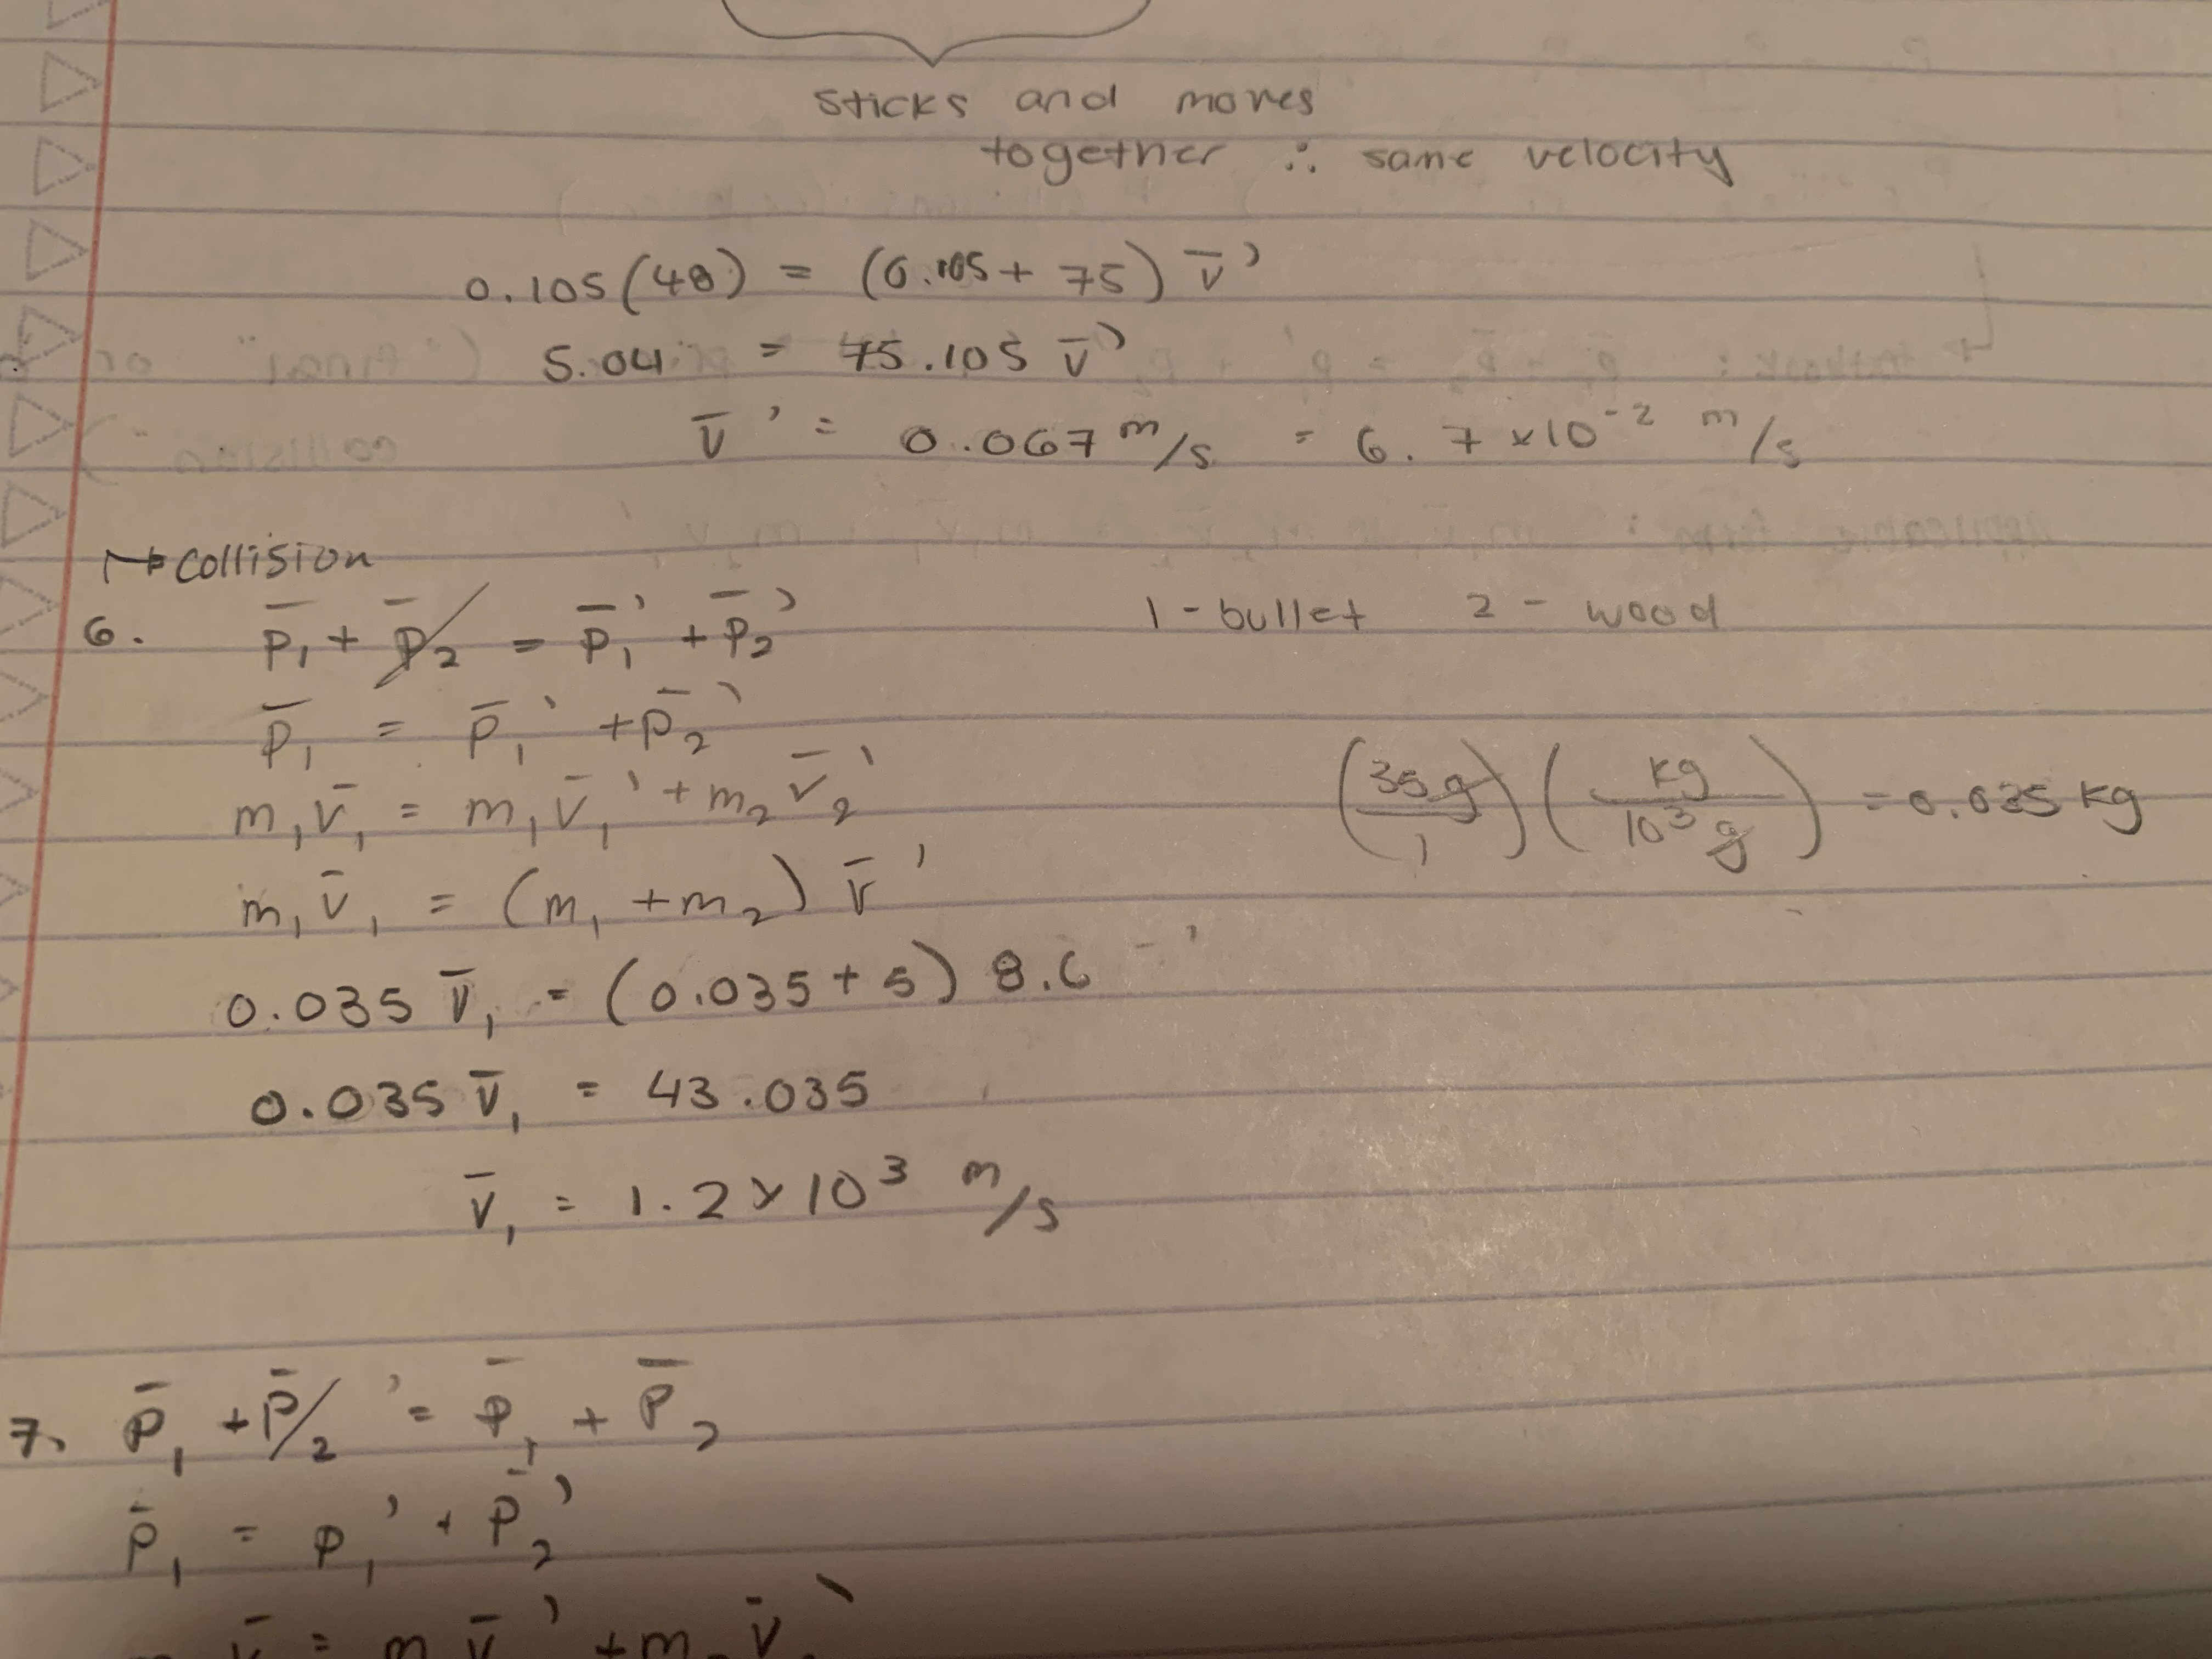 sticks and moves
together ∴ same velocity
0.105(48) = (0.105 + 75) v̄'
5.04 = 75.105 v̄'
v̄' = 0.067 m/s = 6.7 × 10⁻² m/s
↱ collision
6. p̄₁ + p̄₂ = p̄₁' + p̄₂' 1 - bullet 2 - wood
p̄₁ = p̄₁' + p̄₂'
m₁v̄₁ = m₁v̄₁' + m₂v̄₂' (35g/1)(kg/10³g) = 0.035 kg
m₁v̄₁ = (m₁ + m₂) v̄'
0.035 v̄₁ = (0.035 + 5) 8.6
0.035 v̄₁ = 43.035
v̄₁ = 1.2 × 10³ m/s
7. p̄₁ + p̄₂' = p̄₁ + p̄₂
p̄₁ = p₁' + p̄₂'
v̄ = m v̄' + m v̄